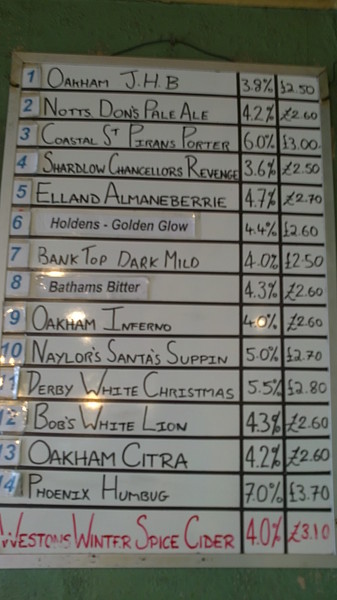 1 OAKHAM J.H.B 3.8% £2.50
2 NOTTS. DON'S PALE ALE 4.2% £2.60
3 COASTAL ST PIRANS PORTER 6.0% £3.00
4 SHARDLOW CHANCELLORS REVENGE 3.6% £2.50
5 ELLAND ALMANEBERRIE 4.7% £2.70
6 Holdens - Golden Glow 4.4% £2.60
7 BANK TOP DARK MILD 4.0% £2.50
8 Bathams Bitter 4.3% £2.60
9 OAKHAM INFERNO 4.0% £2.60
10 NAYLOR'S SANTA'S SUPPIN 5.0% £2.70
11 DERBY WHITE CHRISTMAS 5.5% £2.80
12 BOB'S WHITE LION 4.3% £2.60
13 OAKHAM CITRA 4.2% £2.60
14 PHOENIX HUMBUG 7.0% £3.70
WESTONS WINTER SPICE CIDER 4.0% £3.10